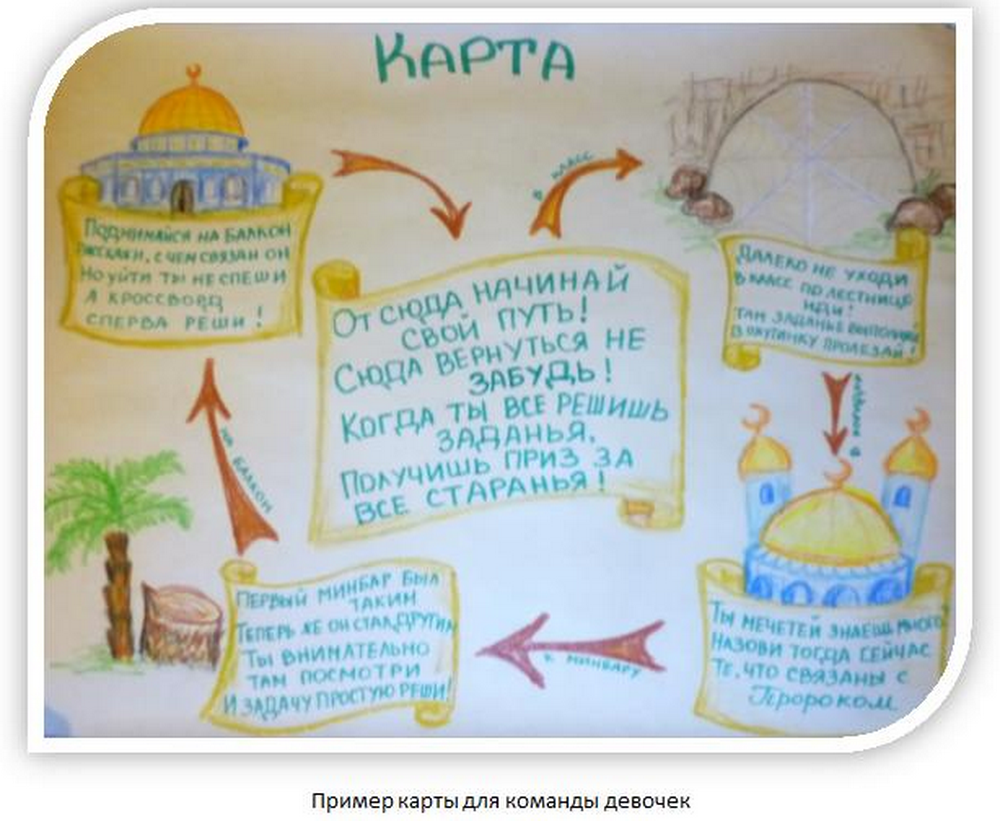 КАРТА
Поднимайся на балкон
Расскажи, с чем связан он
Но уйти ты не спеши
А кроссворд
сперва реши!
в класс
Отсюда начинай
свой путь!
Сюда вернуться не
забудь!
Когда ты все решишь
заданья,
Получишь приз за
все старанья!
Далеко не уходи
В класс по лестнице
иди!
Там заданье выполняй
В паутинку пролезай!
на балкон
Первый минбар был
таким
Теперь же он стал другим
Ты внимательно
там посмотри
И задачу простую реши!
к минбару
Ты мечетей знаешь много
Назови тогда сейчас
Те, что связаны с
Пророком
Пример карты для команды девочек